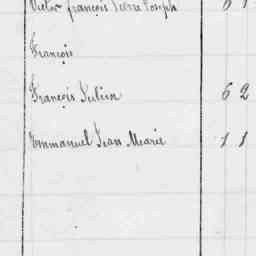 Victor françois Pierre Joseph
François
François Julien 62
Emmanuel Jean Marie 11